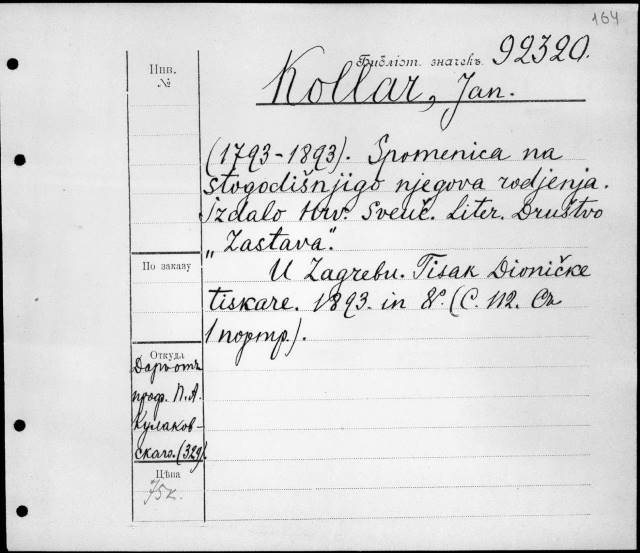 164
Библіот. значекъ 92320.
Kollar, Jan.
Инв.
№
(1793-1893). Spomenica na
stogodišnjigo njegova rodjenja.
Izdalo Hrv. Sveuč. Liter. Društvo
„Zastava".
U Zagrebu. Tisak Dioničke
tiskare. 1893. in 8º. (С. 112. Съ
1 портр.).
По заказу
Откуда
Даръ отъ
проф. П. А.
Кулаков-
скаго. (329).
Цѣна
75к.